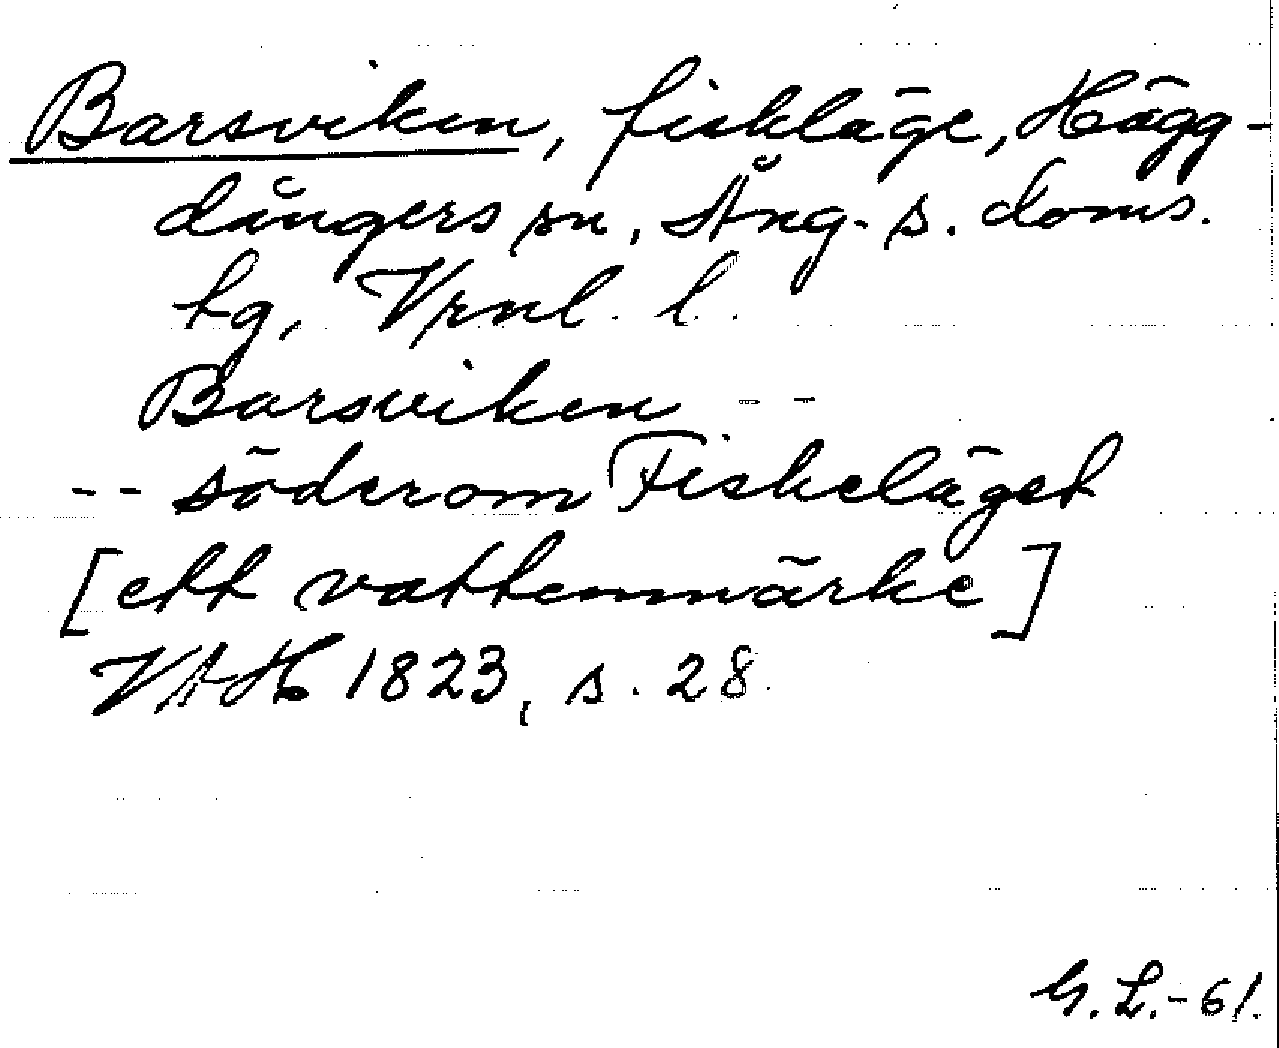 Barsviken, fiskläge, Hägg-
dångers sn, Ång. s. doms.
tg, Vrnl. l.
Barsviken --
-- söderom Fiskeläget
[ett vattenmärke]
VAH 1823, s. 28.
G. L. -61.